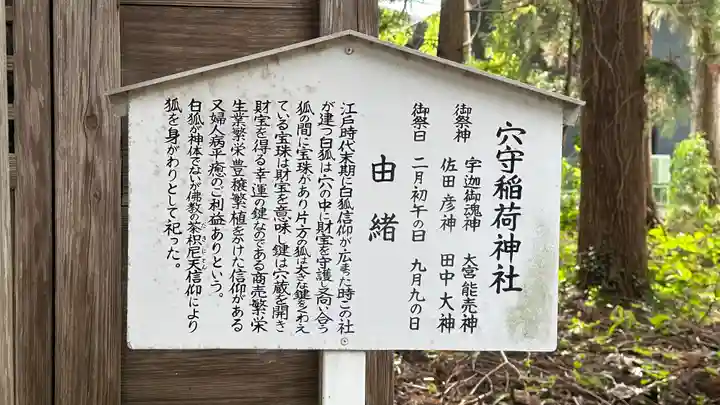 穴守稲荷神社
御祭神 宇迦御魂神 大宮能売神
佐田彦神 田中大神
御祭日 二月初午の日 九月九の日
由緒
江戸時代末期に白狐信仰が広まった時この社
が建つ白狐は穴の中に財宝を守護し又向い合う
狐の間に宝珠があり片方の狐は大きな鍵をくわえ
ている宝珠は財宝を意味し鍵は穴蔵を開き
財宝を得る幸運の鍵なのである商売繁栄
生業繁栄豊穣繁植をかけた信仰がある
又婦人病平癒のご利益ありという。
白狐が神体でないが佛教の荼枳尼天信仰により
狐を身がわりとして祀った。